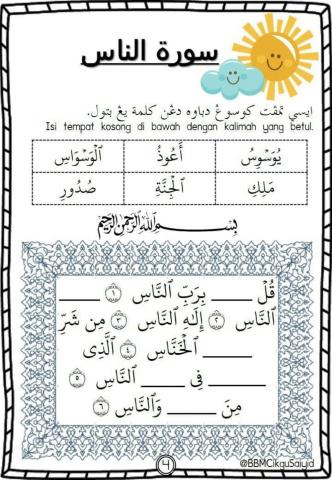 سورة الناس
ايسي تمڤت كوسوڠ دباوه دڠن كلمة يڠ بتول.
Isi tempat kosong di bawah dengan kalimah yang betul.
يُوَسْوِسُ أَعُوذُ ٱلْوَسْوَاسِ
مَلِكِ ٱلْجِنَّةِ صُدُورِ
بِسْمِ ٱللَّهِ ٱلرَّحْمَٰنِ ٱلرَّحِيمِ
قُلْ ______ بِرَبِّ ٱلنَّاسِ ١ ______
ٱلنَّاسِ ٢ إِلَٰهِ ٱلنَّاسِ ٣ مِن شَرِّ
______ ٱلْخَنَّاسِ ٤ ٱلَّذِى
______ فِى ______ ٱلنَّاسِ ٥
مِنَ ______ وَٱلنَّاسِ ٦
4
@BBMCikguSaiyid